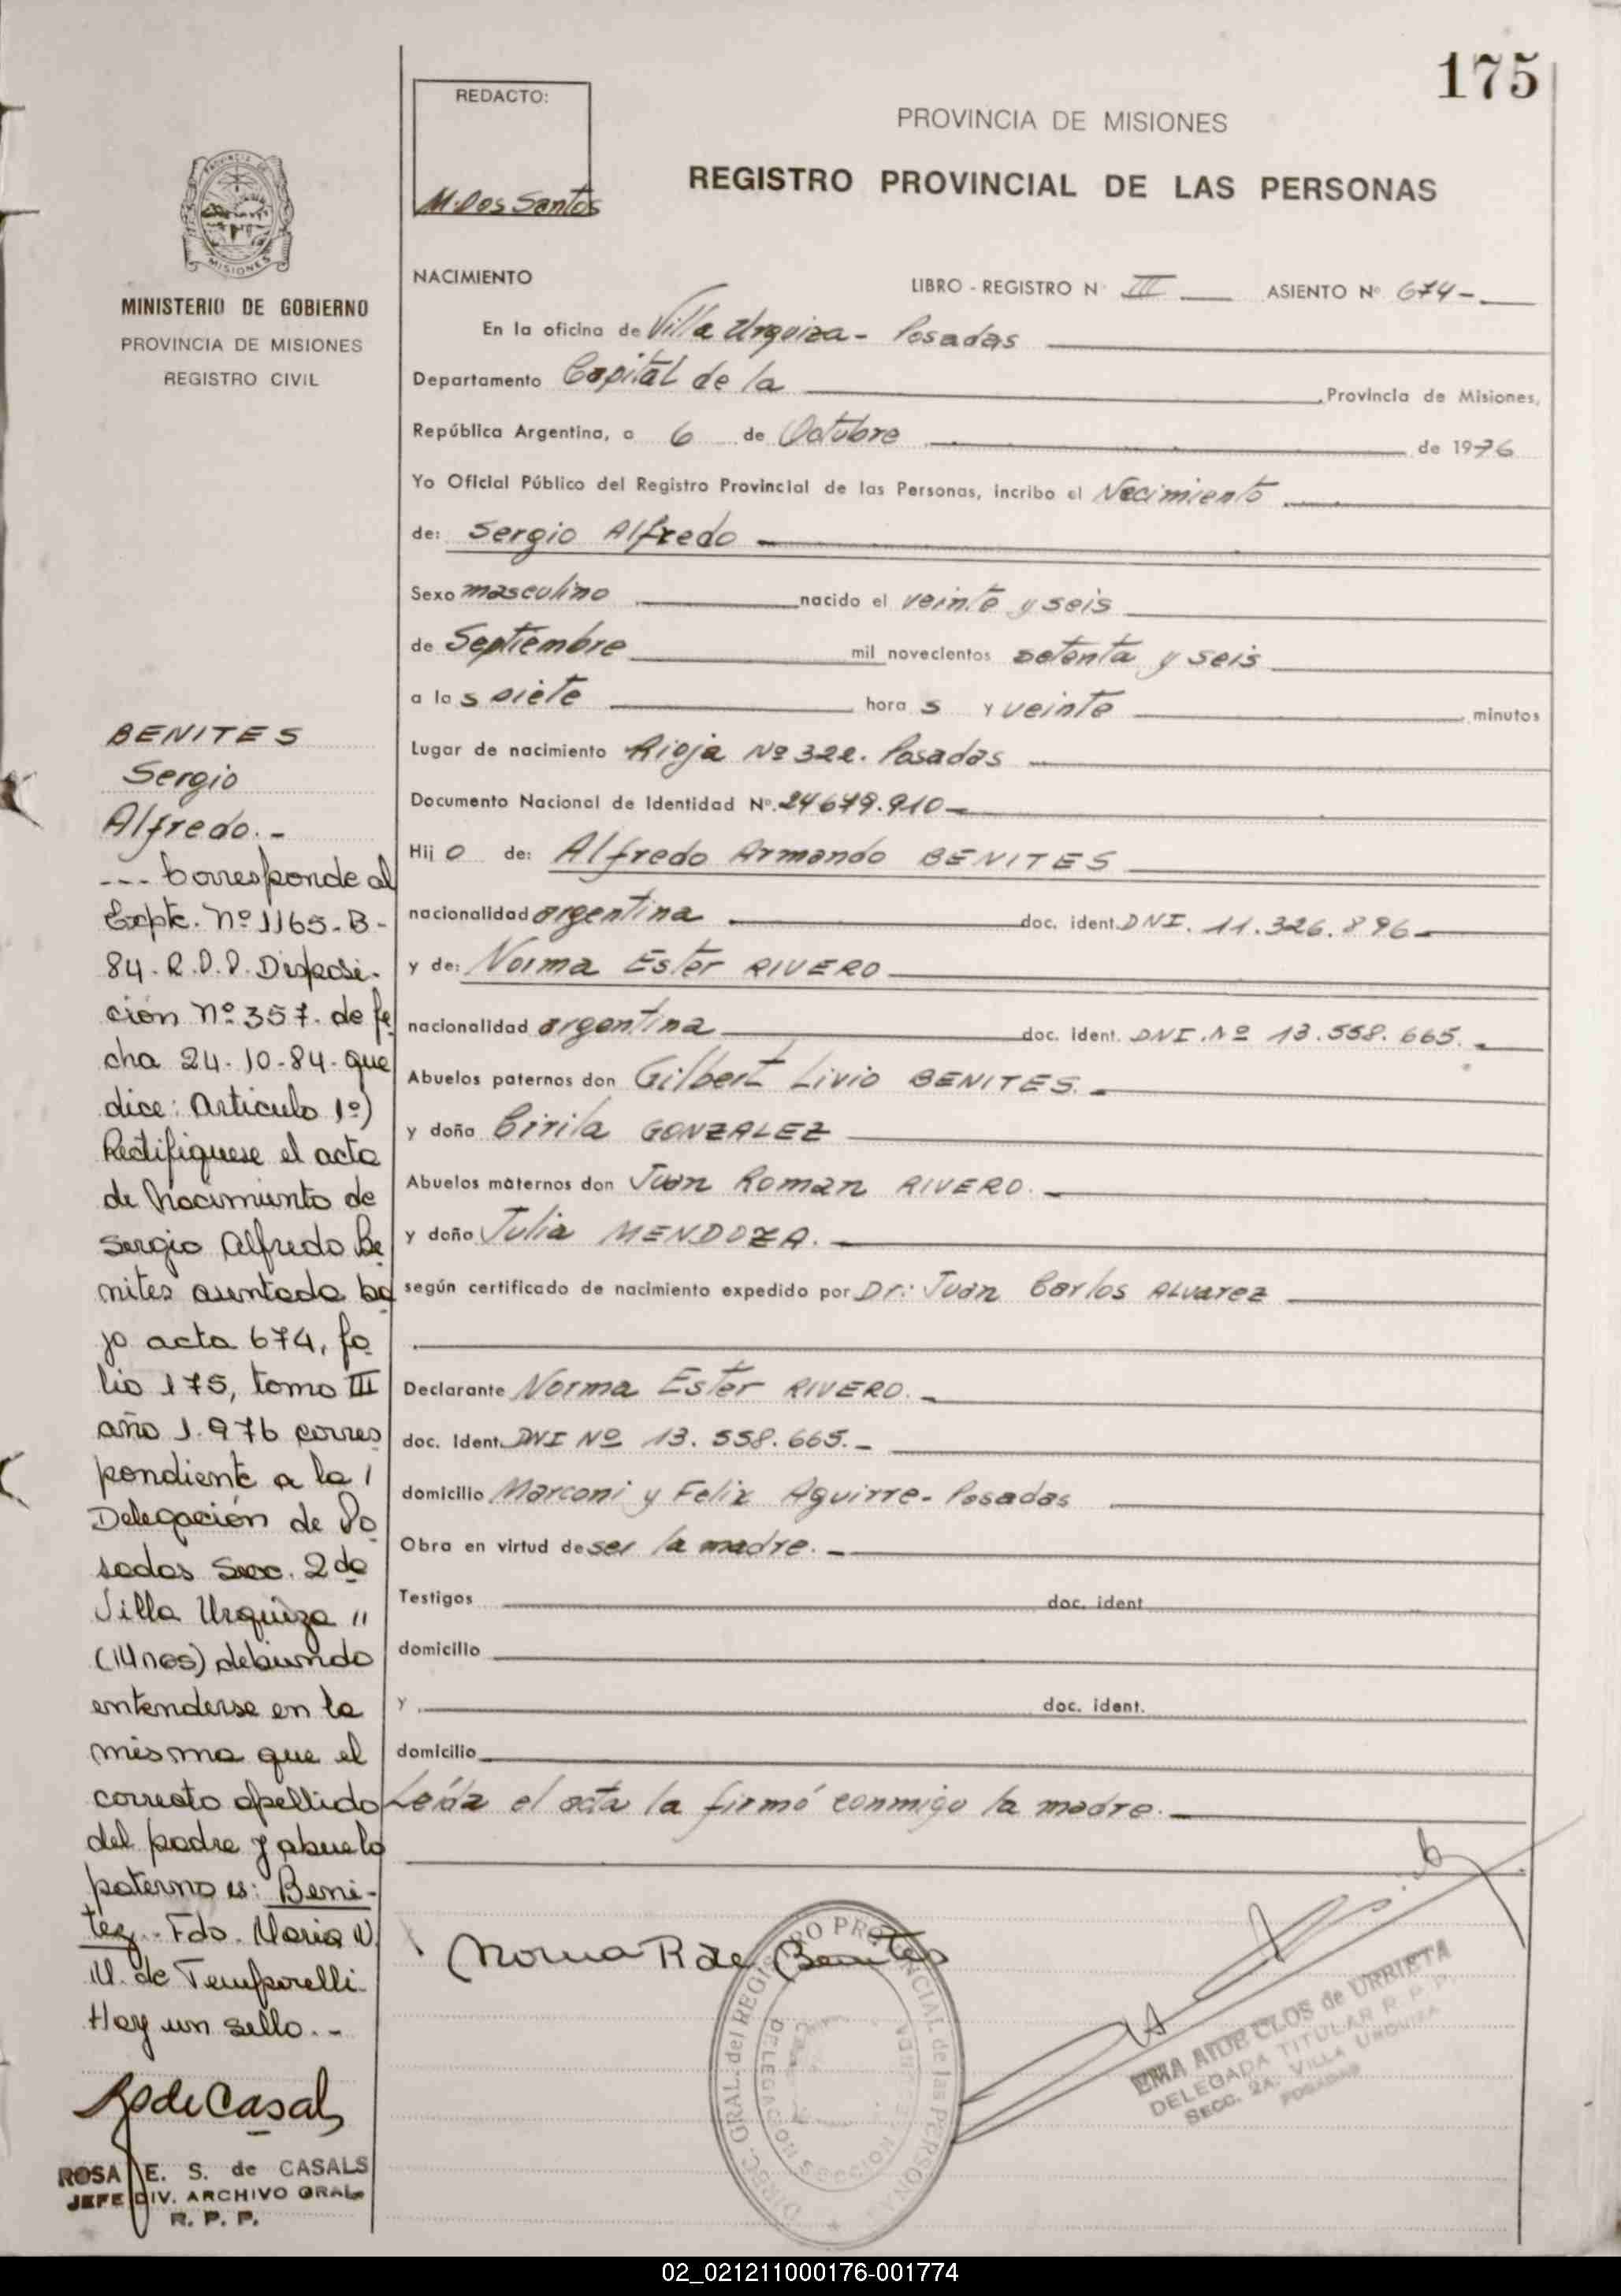 175
REDACTO:
M. Dos Santos
PROVINCIA DE MISIONES
REGISTRO PROVINCIAL DE LAS PERSONAS
PROVINCIA DE
MISIONES
MINISTERIO DE GOBIERNO
PROVINCIA DE MISIONES
REGISTRO CIVIL
NACIMIENTO
LIBRO - REGISTRO N° III ASIENTO N° 674-
En la oficina de Villa Urquiza - Posadas
Departamento Capital de la Provincia de Misiones,
República Argentina, a 6 de Octubre de 1976
Yo Oficial Público del Registro Provincial de las Personas, incribo el Nacimiento
de: Sergio Alfredo
Sexo masculino nacido el veinte y seis
de Septiembre mil novecientos setenta y seis
a las siete horas y veinte minutos
Lugar de nacimiento Rioja Nº 322. Posadas
Documento Nacional de Identidad Nº. 24679.910-
Hijo de: Alfredo Armando BENITES
nacionalidad argentina doc. ident. DNI. 11.326.896-
y de: Norma Ester RIVERO
nacionalidad argentina doc. ident. DNI. Nº 13.558.665.-
Abuelos paternos don Gilbert Livio BENITES.-
y doña Cirila GONZALEZ
Abuelos maternos don Juan Roman RIVERO.-
y doña Julia MENDOZA.-
según certificado de nacimiento expedido por Dr: Juan Carlos ALVAREZ
Declarante Norma Ester RIVERO.-
doc. Ident. DNI Nº 13.558.665.-
domicilio Marconi y Felix Aguirre - Posadas
Obra en virtud de ser la madre.-
Testigos doc. ident
domicilio
y doc. ident.
domicilio
Leída el acta la firmó conmigo la madre.-
BENITES
Sergio
Alfredo.-
--- Corresponde al
Expte. Nº 1165-B-
84-R.P.P. Disposi-
ción Nº 357. de fe
cha 24-10-84- que
dice: Artículo 1º)
Rectifiquese el acta
de Nacimiento de
Sergio Alfredo Be
nites asentada ba
jo acta 674, fo
lio 175, tomo III
año 1.976 corres
pondiente a la /
Delegación de Po
sadas Secc. 2da
Villa Urquiza "
(Mnes) debiendo
entenderse en la
misma que el
correcto apellido
del padre y abuelo
paterno es: Beni-
tez.- Fdo. Maria N.
M. de Temporelli.
Hay un sello.-
R de Casals
ROSA E. S. de CASALS
JEFE DIV. ARCHIVO GRAL.
R. P. P.
Norma R de Benites
DIREC. GRAL. del REGISTRO PROVINCIAL de las PERSONAS
DELEGACION SECCION
EMA AIDE CLOS de URRIETA
DELEGADA TITULAR R. P. P.
SECC. 2A. VILLA URQUIZA
POSADAS
02_021211000176-001774